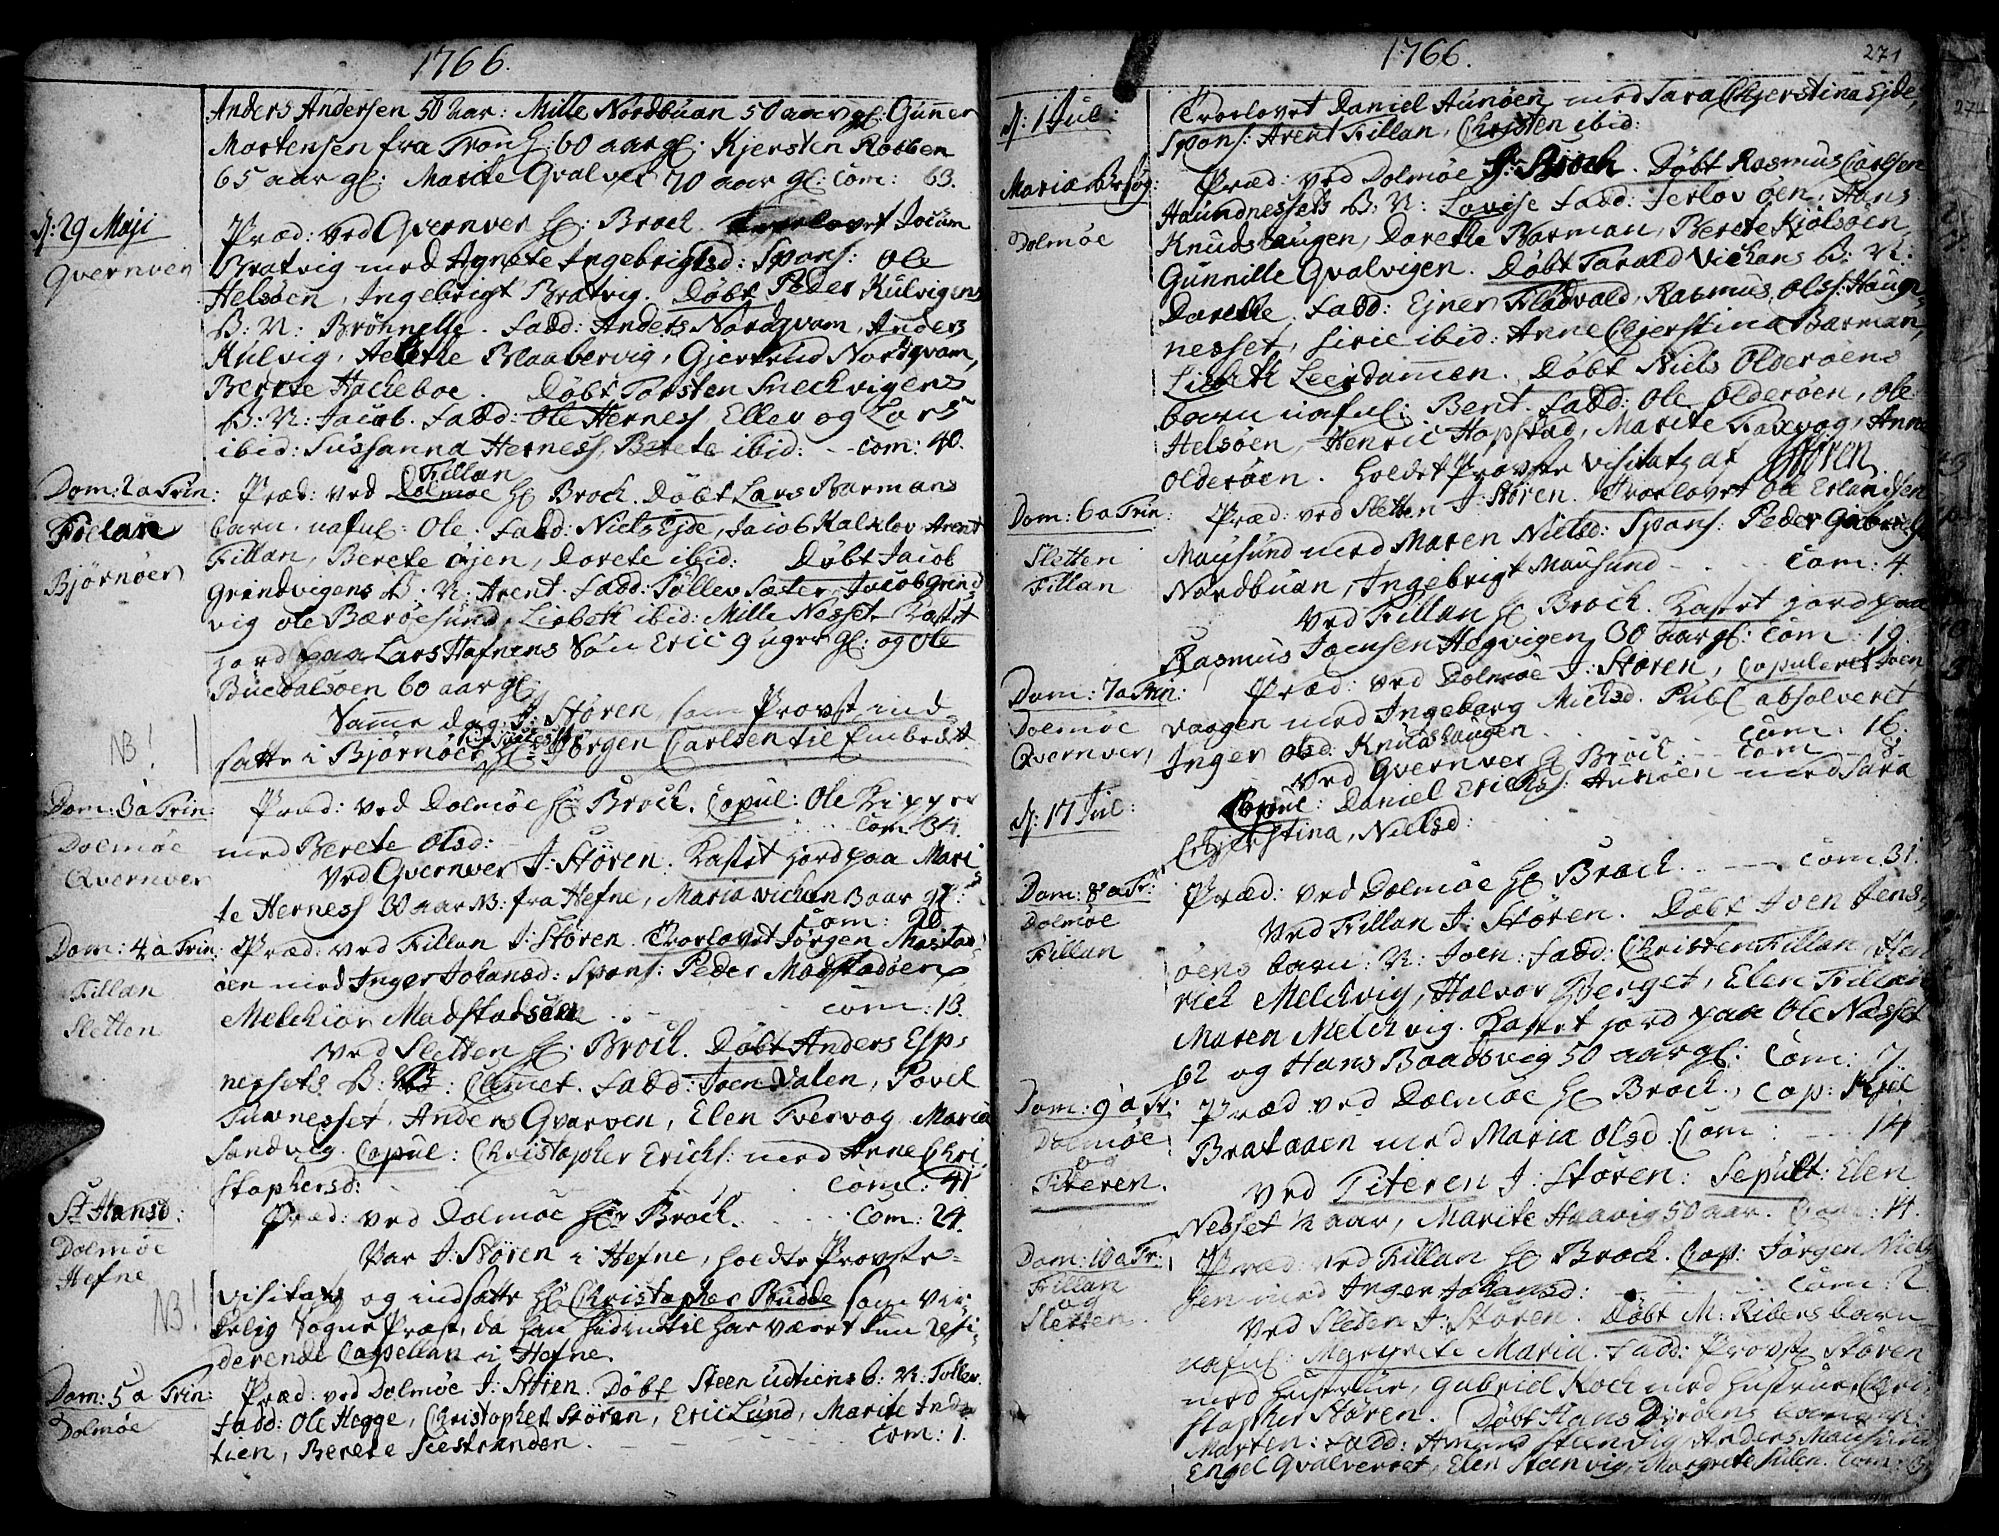 1766.
Anders Andersen 50 aar: Mille Nordbuan 50 aar gl: Gunner
Mortensen fra Tron H: 60 aar gl: Kjersten Robben
65 aar gl: Marite Qvalver 70 aar gl: Com: 63.
d: 29 Maji
Qvernver
Præd: ved Qvernver H: Broch. Trorlovet Jocum
Bratvig med Agnete Ingebrigtsd: Spons: Ole
Helsöen, Ingebrigt Bratvig. Döbt Peder Kulvigens
B: N: Brönnelle. Fadd: Anders Nordqvam, Anders
Kulvig, Aelethe Blaabervig, Gjertrud Nordqvam,
Berete Hacheboe. Döbt Torsten Snechvigens
B: N: Jacob. Fadd: Ole Herness Ellev og Lars
ibid: Sussanna Herness, Berete ibid: - - Com: 40.
Dom: 2 a Trin:
Fillan
Bjørnöer
Fillan
Præd: ved Dolmøe H: Broch. Döbt Lars Barmans
barn nafnl: Ole. Fadd: Niels Ejde, Jacob Kalklov Arent
Fillan, Berete Öjen, Dorete ibid: Döbt Jacob
Grindvigens B: N: Arent. Fadd: Töllev Sæter, Jacob Grind
vig Ole Bæröesund, Lisbeth ibid: Mille Nesset. Kastet
jord paa Lars Hafnens Sön Eric 9 uger gl: og Ole
Buedalsöen 60 aar gl:
NB!
Samme dag J: Stören som Provst ind
satte i Bjørnöer H: Jörgen Carlsen til Embedet
Dom: 3 a Trin:
Dolmøe
Qvernver
Præd: ved Dolmøe H: Broch. Copul: Ole Kipper
med Berete Olsd: Com: 34.
ved Qvernver J: Stören. Kastet jord paa Mari
te Herness 30 aar NB: fra Hefne, Maria Vichan 3 aar gl:
Com: 20.
Dom: 4 a Trin:
Fillan
Sletten
Præd: ved Fillan J: Stören. Trorlovet Jörgen Mastad
öen med Inger Johansd: Spons: Peder Madstadöen
Melchior Madstadöen . - - - Com: 13.
ved Sletten H: Broch. Döbt Anders Esp
nessets B: N: Clemet. Fadd: Joen Valen, Povel
Tuvnesset, Anders Qvarven, Elen Tvervog, Maria
Sandvig. Copul: Christopher Erichs: med Anne Chri
stophersd: Com: 41
St: Hansd:
Dolmøe
Hefne
NB!
Præd: ved Dolmøe Hr Broch. - - Com: 24.
Var J: Stören i Hefne, holdte Provste-
visitats og indsatte H: Christopher Budde som vir
kelig Sogne Præst, da han hidindtil har været kun resi
derende Capellan i Hefne.
Dom: 5 a Trin:
Dolmøe
Præd: ved Dolmøe J: Stören. Döbt Steen Udtiens B: N: Toller.
Fadd: Ole Hegge, Christopher Stören, Eric Lund, Marite Ind
tien, Berete Seestranden. - - - - Com: 1.
1766.
271
d: 1 Jul:
Trorlovet Daniel Aunöen med Sara Chjerstina Ejde,
Spons: Arent Fillan, Christen ibid:
Mariæ besög:
Dolmøe
Præd: ved Dolmøe J: Broch. Döbt Rasmus Carlsen
Haundnessets B: N: Lovise Fadd: Jerlov Öen, Hans
Knudshaugen, Dorethe Barman, Berete Kjölsöen,
Gunnille Qvalvigen. Döbt Tarald Vichans B: N:
Dorethe. Fadd: Ejner Fladvald, Rasmus Ols: Haugn
nesset, Sirie ibid: Anne Chjerstina Barman,
Lisbeth Leerdammen. Döbt Niels Olderöens
barn nafnl: Bent. Fadd: Ole Olderöen, Ole
Helsöen, Henric Hopstad, Marite Faxvog, Anne
Olderöen. Holdet Provste Visitatz af Stören.
Dom: 6 a Trin:
Sletten
Fillan
Præd: ved Sletten J: Stören. Trorlovet Ole Erlandsen
Mausund med Maren Nielsd: Spons: Peder Gabriels
Nordbuan, Ingebrigt Mausund - - - Com: 4.
ved Fillan H: Broch. Kastet jord paa
Rasmus Joensen Hegvigen 30 aar gl: Com: 19.
Dom: 7 a Trin:
Dolmøe
Qvernver
Præd: ved Dolmøe J: Stören, Copuleret Joen
vaagen med Ingeborg Nielsd. Publ absolveret
Inger Olsd: Knudshaugen Com: 16.
ved Qvernver H: Broch - - Com - 8.
d: 17 Jul:
Copul: Daniel Erichs: Aunöen med Sara
Chjerstina, Nielsd:
Dom: 8 a Tr:
Dolmøe
Fillan
Præd: ved Dolmøe H: Broch. - - - Com: 31.
Ved Fillan J: Stören. Döbt Joen Jens
öens barn: N: Joen: Fadd: Christen Fillan, Hen
rich Melchvig, Halvor Berget, Elen Fillan
Maren Melchvig. Kastet jord paa Ole Nesset
62 og Hans Baadsvig 50 aar gl: Com: 7.
Dom: 9 a Tr:
Dolmøe
og
Titeren.
Præd: ved Dolmøe H: Broch., Cop: Kjel
Brataaen med Maria Olsd. Com: - - 14
ved Titeren J: Stören: Sepult: Elen
Nesset ½ aar, Marite Haavig 50 aar. Com: 14.
Dom: 10 a Tr:
Fillan
og
Sletten.
Præd: ved Fillan H: Broch. Cop: Jörgen Niel
sen med Inger Johansd: - - - Com: 2
ved Sletten J: Stören. Döbt M: Ribers barn
nafnl: Margrete Maria. Fadd: Provst Stören
med hustrue, Gabriel Koch med hustrue, Chri
stopher Stören. Döbt Hans Dyröens barn N:
Morten: Fadd: Amund Steenvig, Anders Mausund
Engel Qvalverset, Elen Steenvig, Margrete Sulen. Com: